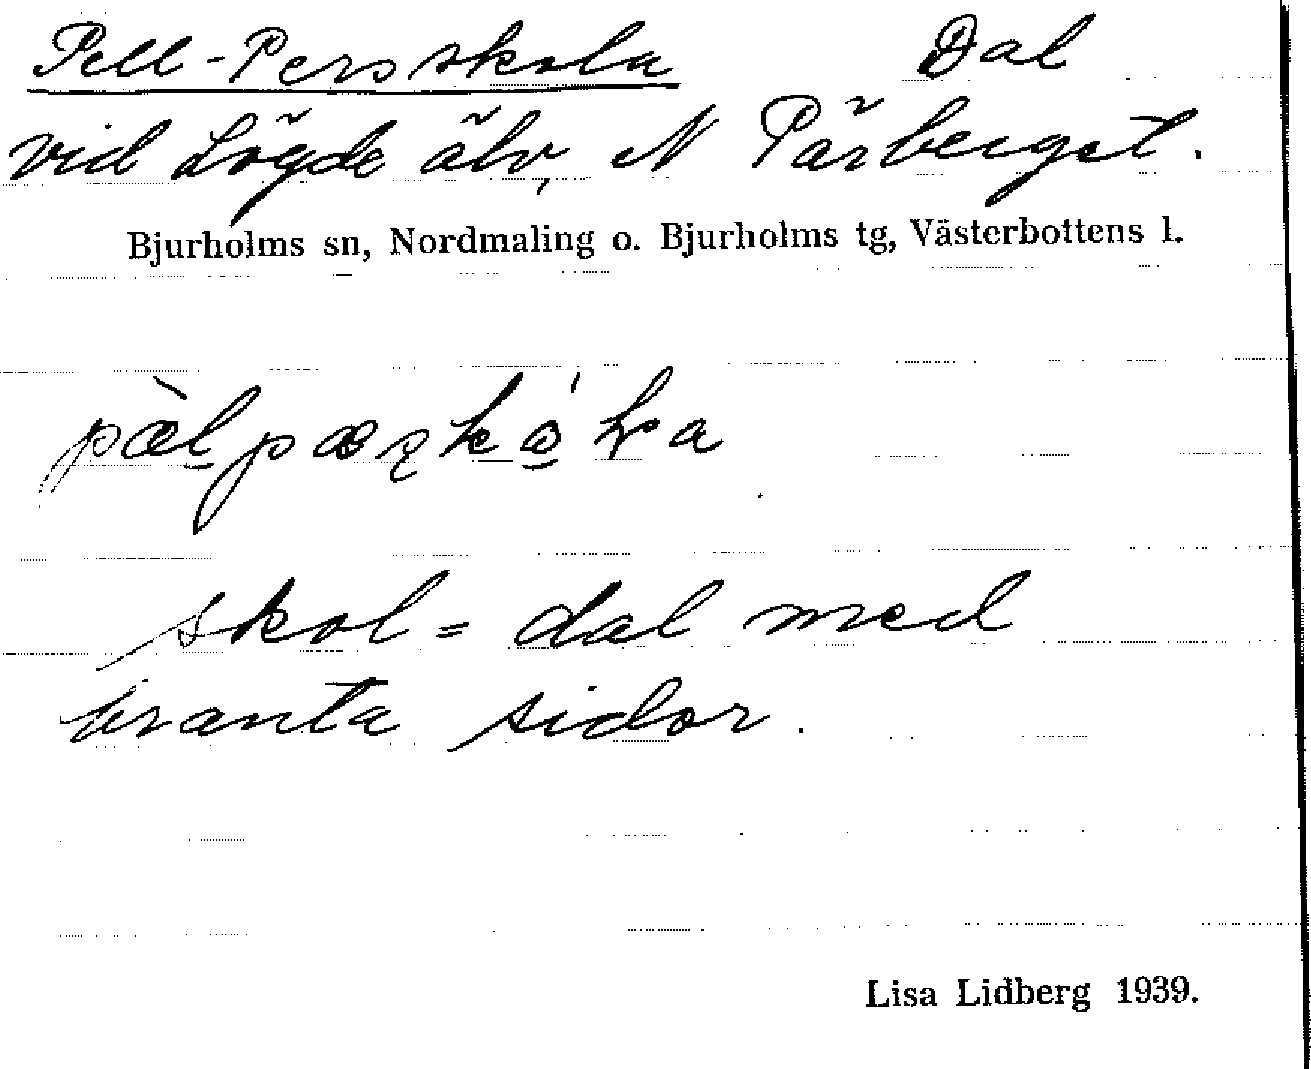 Pell-Persskola Dal
vid Lögde älv, N Pärberget.
Bjurholms sn, Nordmaling o. Bjurholms tg, Västerbottens l.
skol = dal med
branta sidor.
Lisa Lidberg 1939.